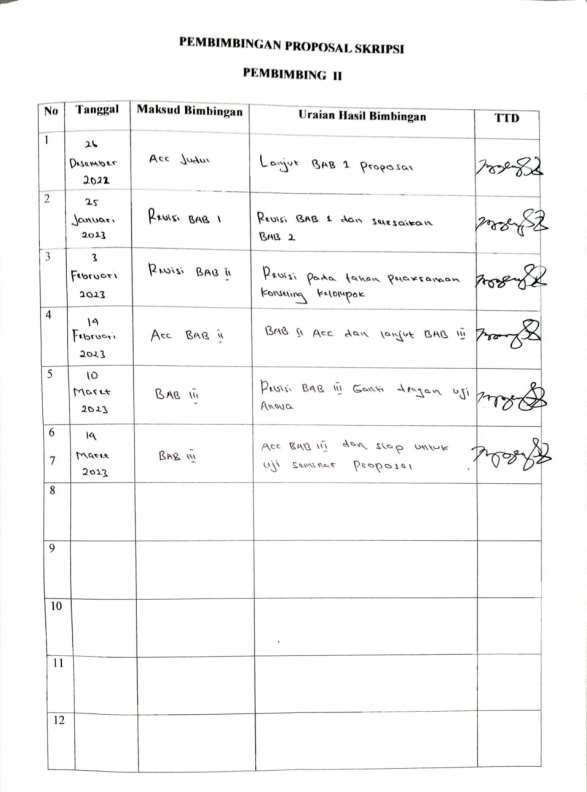 PEMBIMBINGAN PROPOSAL SKRIPSI
PEMBIMBING II
No Tanggal Maksud Bimbingan Uraian Hasil Bimbingan TTD
1 26 Desember 2022 Acc Judul Lanjut BAB 1 Proposal
2 25 Januari 2023 Revisi BAB 1 Revisi BAB 1 dan selesaikan
BAB 2
3 3 Februari 2023 Revisi BAB ii Revisi pada tahap pelaksanaan
konseling kelompok
4 19 Februari 2023 Acc BAB ii BAB ii Acc dan lanjut BAB iii
5 10 Maret 2023 BAB iii Revisi BAB iii Ganti dengan uji
Anova
6 19 Maret 2023 BAB iii Acc BAB iii dan siap untuk
7 uji seminar Proposal
8
9
10
11
12